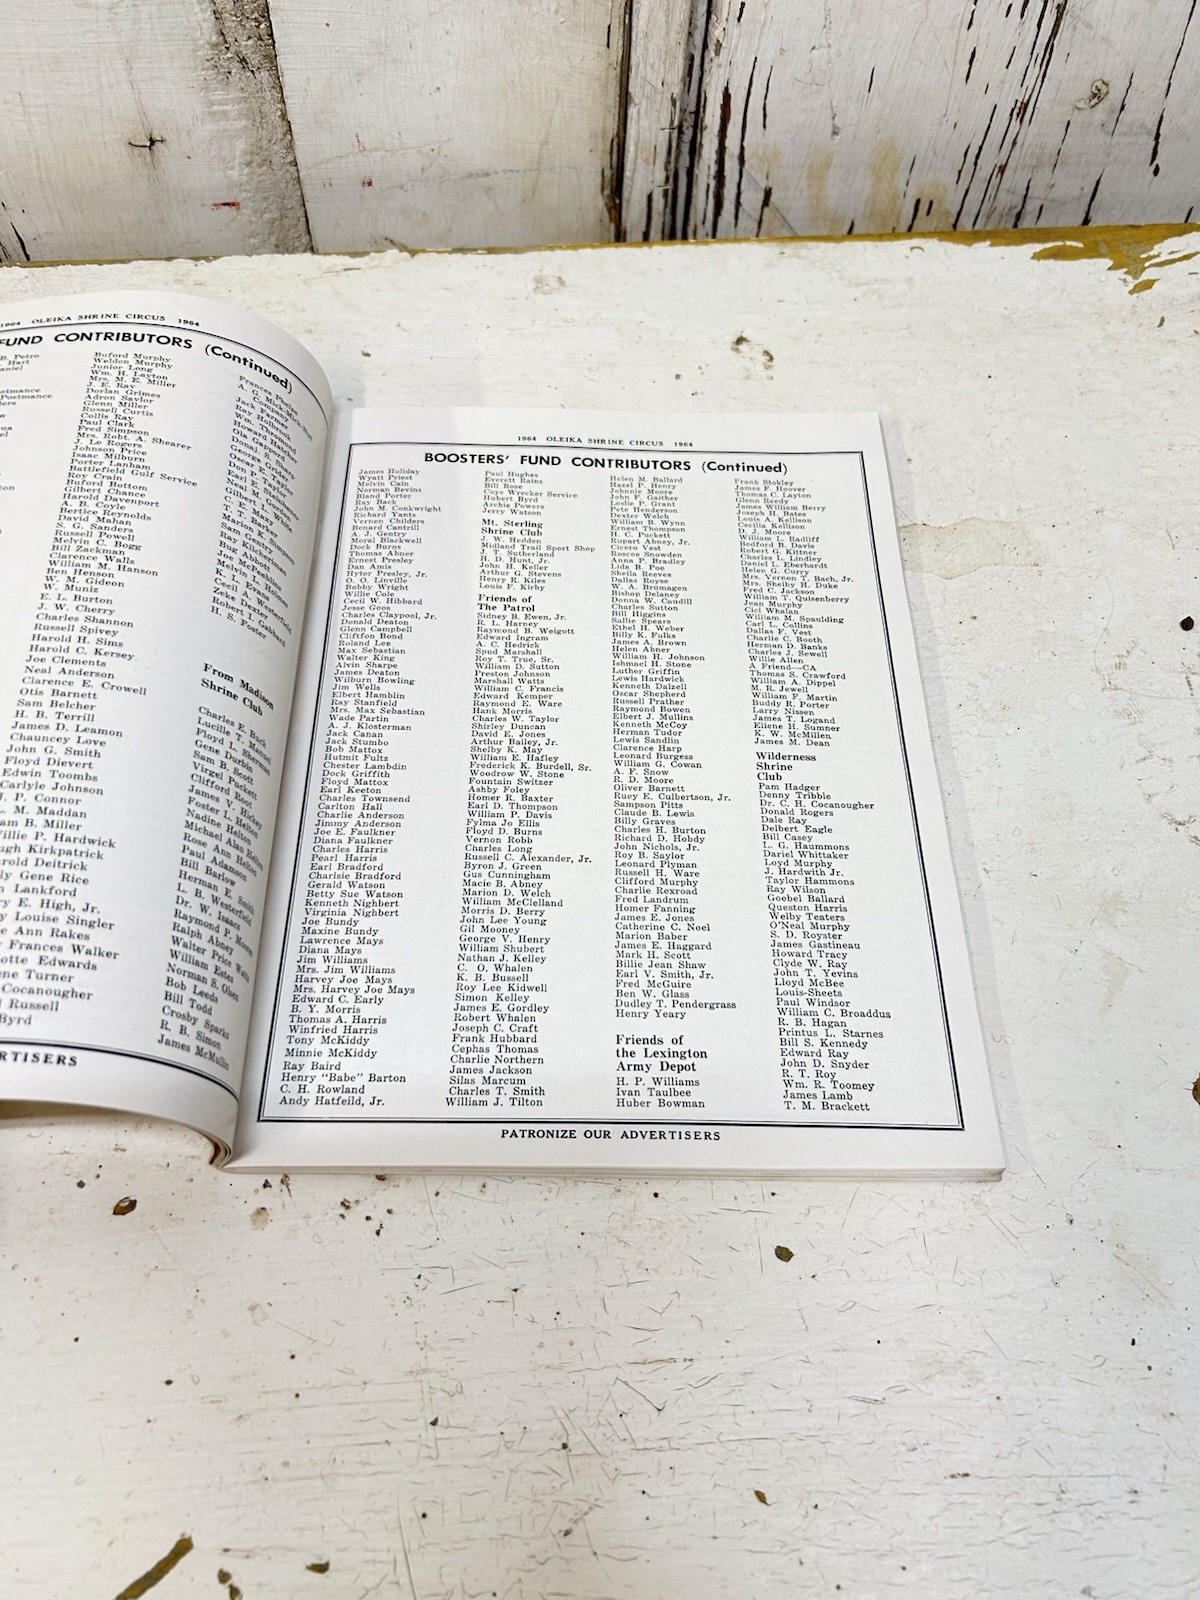 1964 OLEIKA SHRINE CIRCUS 1964
FUND CONTRIBUTORS (Continued)
B. Petre
Hart
Postmance
Buford Murphy
Weldon Murphy
Junior Long
Wm. H. Layton
Mrs. M. E. Miller
J. E. Ray
Dorlan Grimes
Adron Saylor
Glenn Miller
Russell Curtis
Collis Ray
Paul Clark
Fred Simpson
Mrs. Robt. A. Shearer
J. Le Rogers
Johnson Price
Isaac Milburn
Porter Lanham
Battlefield Gulf Service
Roy Crain
Buford Bottom
Gilbert Chance
Harold Davenport
A. B. Coyle
Bertice Reynolds
David Mahan
S. G. Sanders
Russell Powell
Melvin C. Bogg
Clarence Walls
Bill Zackman
William M. Hanson
Ben Henson
W. M. Gideon
W. Muniz
E. L. Burton
J. W. Cherry
Charles Shannon
Russell Spivey
Harold H. Sims
Harold C. Kersey
Joe Clements
Neal Anderson
Clarence E. Crowell
Otis Barnett
Sam Belcher
H. B. Terrill
James D. Leamon
Chauncey Love
John G. Smith
Floyd Dievert
Edwin Toombs
Carlyle Johnson
J. P. Connor
L. M. Maddan
B. Miller
P. Hardwick
Kirkpatrick
Deitrick
Gene Rice
Lankford
E. High, Jr.
Louise Singler
Ann Rakes
Frances Walker
Edwards
Turner
Cocanougher
Russell
Byrd
Jack Farmer
Ray Holbrook
Wm. Thurmond
Ola Gaspord
T. F. Barker
Sam Gentry
Bug Abbott
Zeke Dexter
Robert L. Gabbard
H. S. Foster
From Madison
Shrine Club
Charles E. Buck
Floyd L. Sherman
Gene Durbin
Sam B. Scott
Virgel Puckett
Clifford Root
James V. Hickey
Foster L. Helton
Nadine Helton
Michael Alan Helton
Rose Ann Helton
Paul Adamson
Bill Barlow
Herman E. Smith
L. B. Westerfield
Dr. W. Isaacs
Raymond P. Moores
Ralph Abney
Walter Price Watts
William Estes
Norman S. Olsen
Bob Leeds
Bill Todd
Crosby Sparks
R. B. Simon
James McMullin
1964 OLEIKA SHRINE CIRCUS 1964
BOOSTERS' FUND CONTRIBUTORS (Continued)
James Holiday
Wyatt Priest
Melvin Cain
Norman Bevins
Bland Porter
Ray Back
John M. Conkwright
Richard Yants
Vernen Childers
Benard Cantrill
A. J. Gentry
Moral Blackwell
Dock Burns
Thomas Abner
Ernest Presley
Dan Amis
Hyter Presley, Jr.
O. O. Linville
Robby Wright
Willie Cole
Cecil W. Hibbard
Jesse Goos
Charles Claypool, Jr.
Donald Deaton
Glenn Campbell
Cliftfon Bond
Roland Lee
Max Sebastian
Walter King
Alvin Sharpe
James Deaton
Wilburn Bowling
Jim Wells
Elbert Hamblin
Ray Stanfield
Mrs. Max Sebastian
Wade Partin
A. J. Klosterman
Jack Canan
Jack Stumbo
Bob Mattox
Hutmit Fultz
Chester Lambdin
Dock Griffith
Floyd Mattox
Earl Keeton
Charles Townsend
Carlton Hall
Charlie Anderson
Jimmy Anderson
Joe E. Faulkner
Diana Faulkner
Charles Harris
Pearl Harris
Earl Bradford
Charlsie Bradford
Gerald Watson
Betty Sue Watson
Kenneth Nighbert
Virginia Nighbert
Joe Bundy
Maxine Bundy
Lawrence Mays
Diana Mays
Jim Williams
Mrs. Jim Williams
Harvey Joe Mays
Mrs. Harvey Joe Mays
Edward C. Early
B. Y. Morris
Thomas A. Harris
Winfried Harris
Tony McKiddy
Minnie McKiddy
Ray Baird
Henry "Babe" Barton
C. H. Rowland
Andy Hatfeild, Jr.
Paul Hughes
Everett Rains
Bill Rose
Coys Wrecker Service
Hubert Byrd
Archie Powers
Jerry Watson
Mt. Sterling
Shrine Club
J. W. Hedden
Midland Trail Sport Shop
J. T. Sutherland
H. D. Hunt, Jr.
John H. Keller
Arthur G. Stevens
Henry R. Kiles
Louis F. Kirby
Friends of
The Patrol
Sidney B. Ewen, Jr.
R. L. Harney
Raymond B. Weigott
Edward Ingram
A. C. Hedrick
Spud Marshall
Roy T. True, Sr.
William D. Sutton
Preston Johnson
Marshall Watts
William C. Francis
Edward Kemper
Raymond E. Ware
Hank Morris
Charles W. Taylor
Shirley Duncan
David E. Jones
Arthur Bailey, Jr.
Shelby K. May
William E. Hafley
Frederick K. Burdell, Sr.
Woodrow W. Stone
Fountain Switzer
Ashby Foley
Homer R. Baxter
Earl D. Thompson
William P. Davis
Fylma Jo Ellis
Floyd D. Burns
Vernon Robb
Charles Long
Russell C. Alexander, Jr.
Byron J. Green
Gus Cunningham
Macie B. Abney
Marion D. Welch
William McClelland
Morris D. Berry
John Lee Young
Gil Mooney
George V. Henry
William Shubert
Nathan J. Kelley
C. O. Whalen
K. B. Bussell
Roy Lee Kidwell
Simon Kelley
James E. Gordley
Robert Whalen
Joseph C. Craft
Frank Hubbard
Cephas Thomas
Charlie Northern
James Jackson
Silas Marcum
Charles T. Smith
William J. Tilton
Helen M. Ballard
Hazel P. Henry
Johnnie Moore
John F. Gaither
Leslie P. Grant
Pete Henderson
Dexter Welch
William B. Wynn
Ernest Thompson
H. C. Puckett
Rupart Abney, Jr.
Cicero Vest
Roscoe Snowden
Anna P. Bradley
Lida B. Poe
Sheila Reeves
Dallas Royse
W. A. Brumagen
Bishop Delaney
Donna W. Caudill
Charles Sutton
Bill Higgins
Sallie Spears
Ethel H. Weber
Billy K. Fulks
James A. Brown
Helen Abner
William H. Johnson
Ishmael H. Stone
Luther Griffin
Lewis Hardwick
Kenneth Dalzell
Oscar Shepherd
Russell Prather
Raymond Bowen
Elbert J. Mullins
Kenneth McCoy
Herman Tudor
Lewis Sandlin
Clarence Harp
Leonard Burgess
William G. Cowan
A. F. Snow
R. D. Moore
Oliver Barnett
Ruey E. Culbertson, Jr.
Sampson Pitts
Claude B. Lewis
Billy Graves
Charles H. Burton
Richard D. Hobdy
John Nichols, Jr.
Roy B. Saylor
Leonard Plyman
Russell H. Ware
Clifford Murphy
Charlie Rexroad
Fred Landrum
Homer Fanning
James E. Jones
Catherine C. Noel
Marion Baber
James E. Haggard
Mark H. Scott
Billie Jean Shaw
Earl V. Smith, Jr.
Fred McGuire
Ben W. Glass
Dudley T. Pendergrass
Henry Yeary
Friends of
the Lexington
Army Depot
H. P. Williams
Ivan Taulbee
Huber Bowman
Frank Stokley
James F. Hoover
Thomas C. Layton
Glenn Reedy
James William Berry
Joseph H. Bates
Louis A. Kellison
Cecilia Kellison
D. J. Moore
William L. Radliff
Bedford B. Davis
Robert G. Kittner
Charles L. Lindley
Daniel L. Eberhardt
Helen G. Curry
Mrs. Vernon T. Bach, Jr.
Mrs. Shelby H. Duke
Fred C. Jackson
William T. Quisenberry
Jean Murphy
Cici Whalan
William M. Spaulding
Carl L. Collins
Dallas F. Vest
Charlie C. Booth
Herman D. Banks
Charles J. Sewell
Willie Allen
A Friend—CA
Thomas S. Crawford
William A. Dippel
M. R. Jewell
William F. Martin
Buddy R. Porter
Larry Nissen
James T. Logand
Eilene H. Sumner
K. W. McMillen
James M. Dean
Wilderness
Shrine
Club
Pam Hadger
Denny Tribble
Dr. C. H. Cocanougher
Donald Rogers
Dale Ray
Delbert Eagle
Bill Casey
L. G. Haummons
Dariel Whittaker
Loyd Murphy
J. Hardwith Jr.
Taylor Hammons
Ray Wilson
Goebel Ballard
Queston Harris
Welby Teaters
O'Neal Murphy
S. D. Royster
James Gastineau
Howard Tracy
Clyde W. Ray
John T. Yevins
Lloyd McBee
Louis-Sheets
Paul Windsor
William C. Broaddus
R. B. Hagan
Printus L. Starnes
Bill S. Kennedy
Edward Ray
John D. Snyder
R. T. Roy
Wm. R. Toomey
James Lamb
T. M. Brackett
PATRONIZE OUR ADVERTISERS